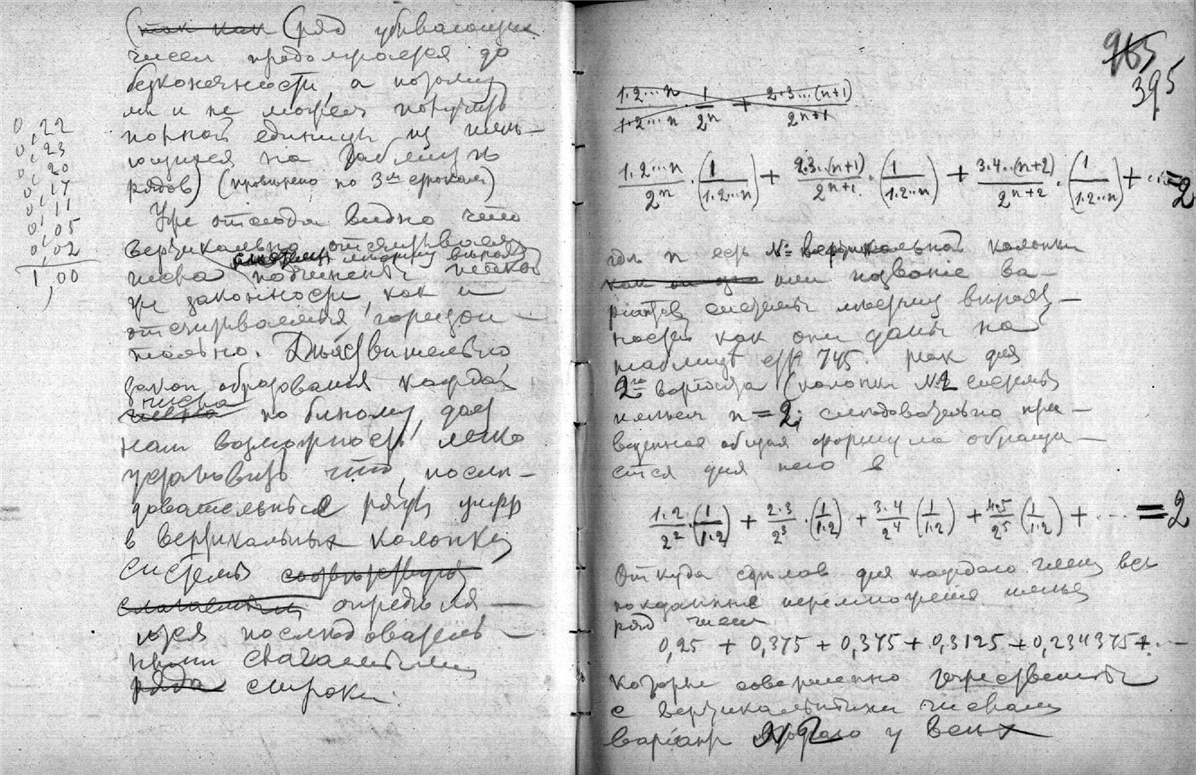 (так как (ряд убывающих
чисел продолжался до
бесконечности, а потому
мы и не можем получить
полной единицы из
на таблице
рядов) (проверено по 3м строкам)
0,22
0,23
0,20
0,17
0,11
0,05
0,02
1,00
Уже отсюда видно что
вертикально отсчитываемые
числа подчинены
же законности, как и
отсчитываемые горизон-
тально. Действительно
закон образования каждого
числа по биному, дает
нам возможность легко
установить что, после-
довательные ряды цифр
в вертикальных колонках
системы
определя-
ются последователь-
ными слагаемыми
ряда строки.
965
395
1·2…n / 1·2…n · 1/2ⁿ + 2·3…(n+1) / 2ⁿ⁺¹
1·2…n / 2ⁿ · (1 / 1·2…n) + 2·3…(n+1) / 2ⁿ⁺¹ · (1 / 1·2…n) + 3·4…(n+2) / 2ⁿ⁺² · (1 / 1·2…n) + … = 2
где n есть № вертикальной колонки
или название ва-
риантов системы
как они даны на
таблице стр 745. так для
2го варианта (колонки №2 системы
имеем n = 2; следовательно при-
веденная общая формула обраща-
ется для него в
1·2/2² · (1/1·2) + 2·3/2³ · (1/1·2) + 3·4/2⁴ (1/1·2) + 4·5/2⁵ (1/1·2) + … = 2
Откуда сделав для каждого члена все
показанные перемножения имеем
ряд чисел
0,25 + 0,375 + 0,375 + 0,3125 + 0,234375 + …
которые совершенно тождественны
с вертикальными числами
вариант № 2 у всех